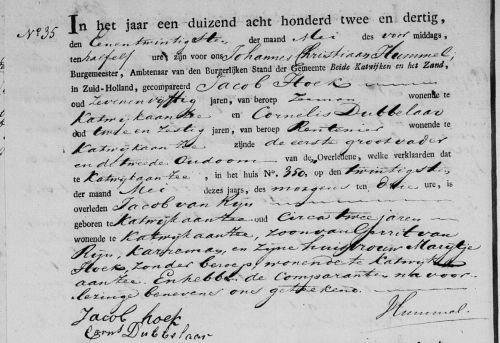 No 35
In het jaar een duizend acht honderd twee en dertig,
den Eenentwintigsten der maand Mei des voor middags,
ten half elf ure, zijn voor ons Johannes Christiaan Hummel,
Burgemeester, Ambtenaar van den Burgerlijken Stand der Gemeente Beide Katwijken en het Zand,
in Zuid-Holland, gecompareerd Jacob Hoek
oud zevenenvijftig jaren, van beroep Zeeman wonende te
Katwijk aan Zee en Cornelis Dubbelaar
oud twee en zestig jaren, van beroep Rentenier wonende te
Katwijk aan Zee zijnde de eerste grootvader
en de tweede Oudoom van de Overledene, welke verklaarden dat
te Katwijk aan Zee, in het huis No. 350, op den twintigsten
der maand Mei dezes jaars, des morgens ten drie ure, is
overleden Jacob van Rijn
geboren te Katwijk aan Zee oud Circa twee jaren
wonende te Katwijk aan Zee, zoon van Gerrit van
Rijn, en zijne huisvrouw Marijtje
Hoek, zonder beroep, wonende te Katwijk
aan Zee. En hebben de Comparanten na voor-
lezinge benevens ons getekend.
Jacob hoek
Corns Dubbelaar
Hummel.